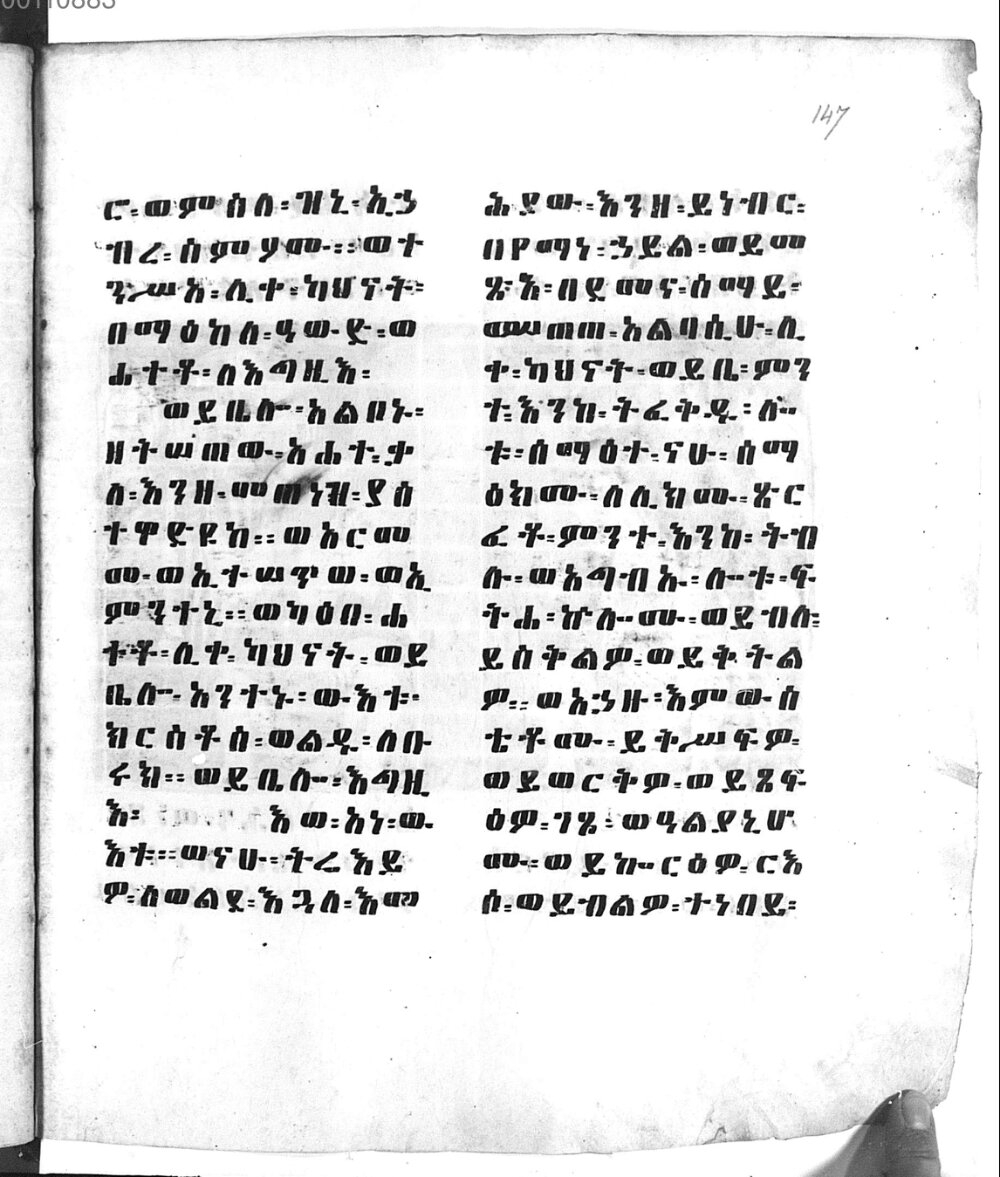 147
ሮ፡ወምስለ፡ዝኒ፡ኢኃ
ብረ፡ስምዖሙ፡፡ወተ
ንሥአ፡ሊቀ፡ካህናት፡
በማዕከለ፡ዓውድ፡ወ
ሐተቶ፡ለእጓዚእ፡
ወይቤሎ፡አልቦኑ፡
ዘትሠጠው፡አሐተ፡ቃ
ለ፡እንዘ፡መጠነዝ፡ያስ
ተዋድዩከ፡፡ወአርመ
መ፡ወኢተሠጥወ፡ወኢ
ምንተኒ፡፡ወካዕበ፡ሐ
ተቶ፡ሊቀ፡ካህናት፡ወይ
ቤሎ፡አንተኑ፡ውእቱ፡
ክርስቶስ፡ወልዱ፡ለቡ
ሩክ፡፡ወይቤሎ፡እጓዚ
እ፡ እወ፡አነ፡ው
እቱ፡፡ወናሁ፡ትሬእይ
ዎ፡ለወልደ፡እጓለ፡እመ
ሕያው፡እንዘ፡ይነብር፡
በየማነ፡ኃይል፡ወይመ
ጽእ፡በደመና፡ሰማይ፡
ወሠጠጠ፡አልባሲሁ፡ሊ
ቀ፡ካህናት፡ወይቤ፡ምን
ተ፡እንከ፡ትፈቅዱ፡ሎ
ቱ፡ሰማዕተ፡ናሁ፡ሰማ
ዕክሙ፡ለሊክሙ፡ፅር
ፈቶ፡ምንተ፡እንከ፡ትብ
ሉ፡ወአጓብኡ፡ሎቱ፡ፍ
ትሐ፡ኵሎሙ፡ወይብሉ፡
ይስቅልዎ፡ወይቅትል
ዎ፡፡ወአኃዙ፡እምውስ
ቴቶሙ፡ይቅሥፍዎ፡
ወይወርቅዎ፡ወይጼፍ
ዕዎ፡ገጾ፡ወዓልያኒሆ
ሙ፡ወይኰርዕዎ፡ርእ
ሶ፡ወይብልዎ፡ተነበይ፡